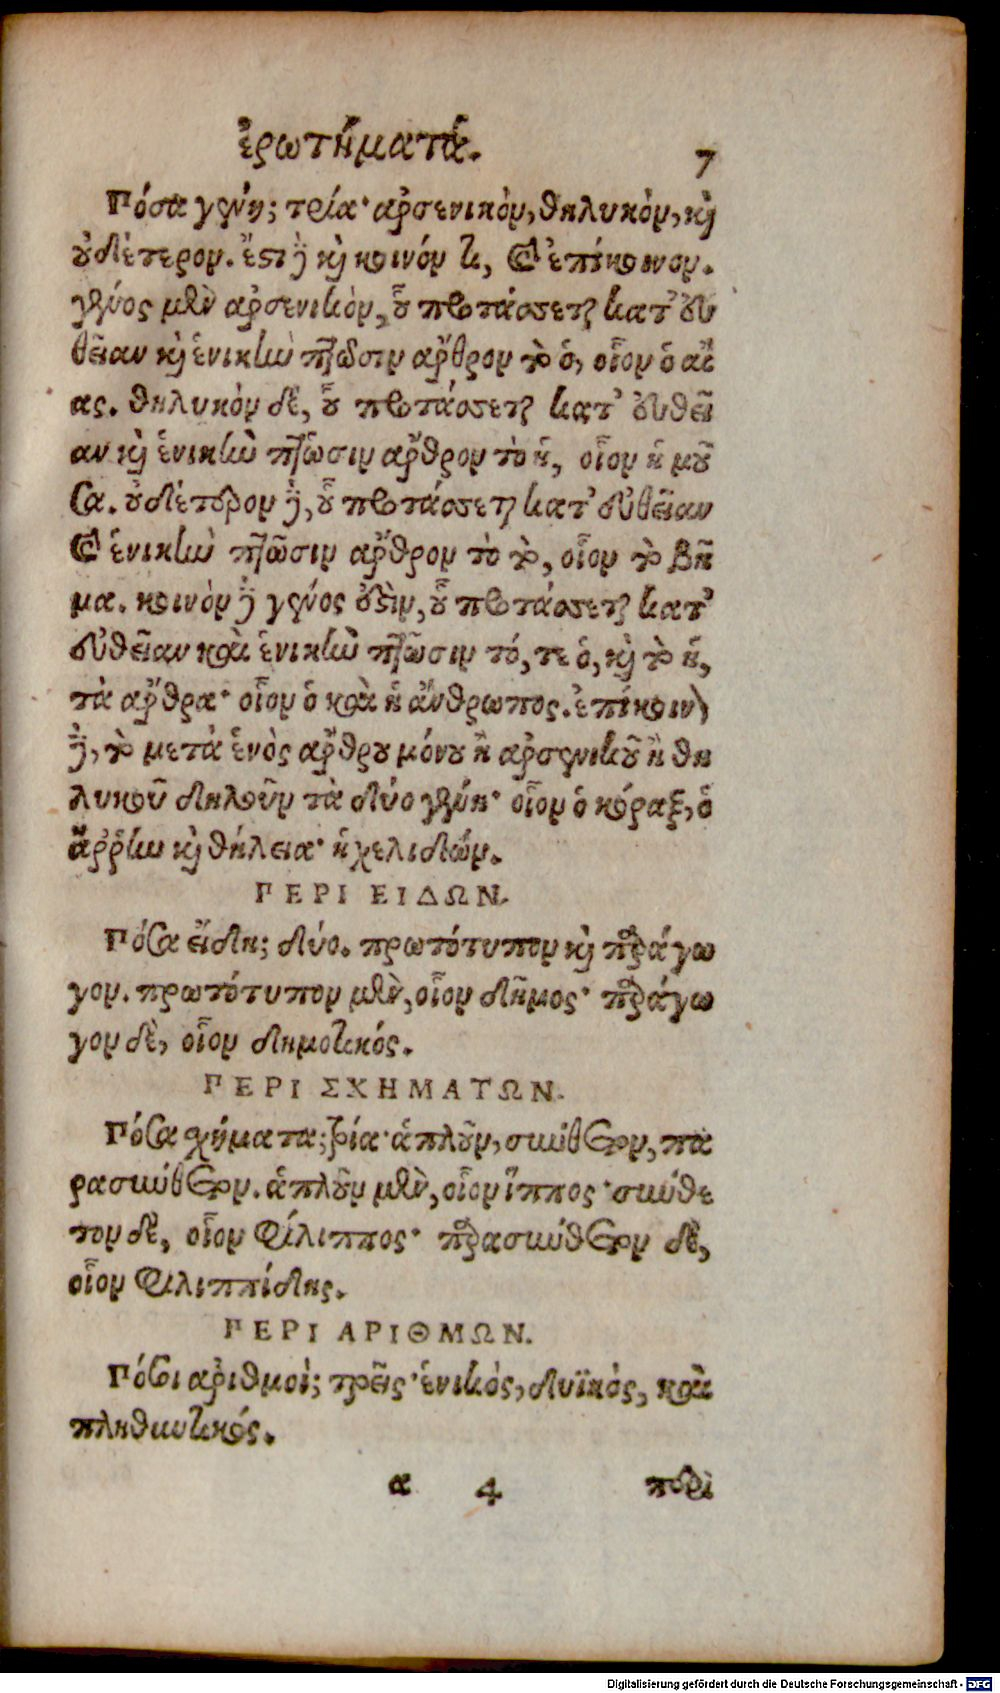 ἐρωτήματα. 7
Πόσα γένη; τρία· ἀρσενικὸν, θηλυκὸν, καὶ
οὐδέτερον. ἔστι δὲ καὶ κοινόν τι, καὶ ἐπίκοινον.
γένος μὲν ἀρσενικὸν, οὗ προτάσσεται κατ' εὐ
θεῖαν καὶ ἑνικὴν πτῶσιν ἄρθρον τὸ ὁ, οἷον ὁ αἴ
ας. θηλυκὸν δὲ, οὗ προτάσσεται κατ' εὐθεῖ
αν καὶ ἑνικὴν πτῶσιν ἄρθρον τὸ ἡ, οἷον ἡ μοῦ
σα. οὐδέτερον δὲ, οὗ προτάσσεται κατ' εὐθεῖαν
καὶ ἑνικὴν πτῶσιν ἄρθρον τὸ τὸ, οἷον τὸ βῆ
μα. κοινὸν δὲ γένος ἐστὶν, οὗ προτάσσεται κατ'
εὐθεῖαν καὶ ἑνικὴν πτῶσιν τό, τε ὁ, καὶ τὸ ἡ,
τὰ ἄρθρα· οἷον ὁ καὶ ἡ ἄνθρωπος. ἐπίκοινον
δὲ, τὸ μετὰ ἑνὸς ἄρθρου μόνου ἢ ἀρσενικοῦ ἢ θη
λυκοῦ δηλοῦν τὰ δύο γένη· οἷον ὁ κόραξ, ὁ
ἄῤῥην καὶ θήλεια· ἡ χελιδών.
ΠΕΡΙ ΕΙΔΩΝ.
Πόσα εἴδη; δύο. πρωτότυπον καὶ παράγω
γον. πρωτότυπον μὲν, οἷον δῆμος· παράγω
γον δὲ, οἷον δημοτικός.
ΠΕΡΙ ΣΧΗΜΑΤΩΝ.
Πόσα σχήματα; τρία· ἁπλοῦν, σύνθετον, πα
ρασύνθετον. ἁπλοῦν μὲν, οἷον ἵππος· σύνθε
τον δὲ, οἷον Φίλιππος· παρασύνθετον δὲ,
οἷον Φιλιππίδης.
ΠΕΡΙ ΑΡΙΘΜΩΝ.
Πόσοι ἀριθμοὶ; τρεῖς· ἑνικὸς, δυϊκὸς, καὶ
πληθυντικός.
α 4 περὶ
Digitalisierung gefördert durch die Deutsche Forschungsgemeinschaft - DFG